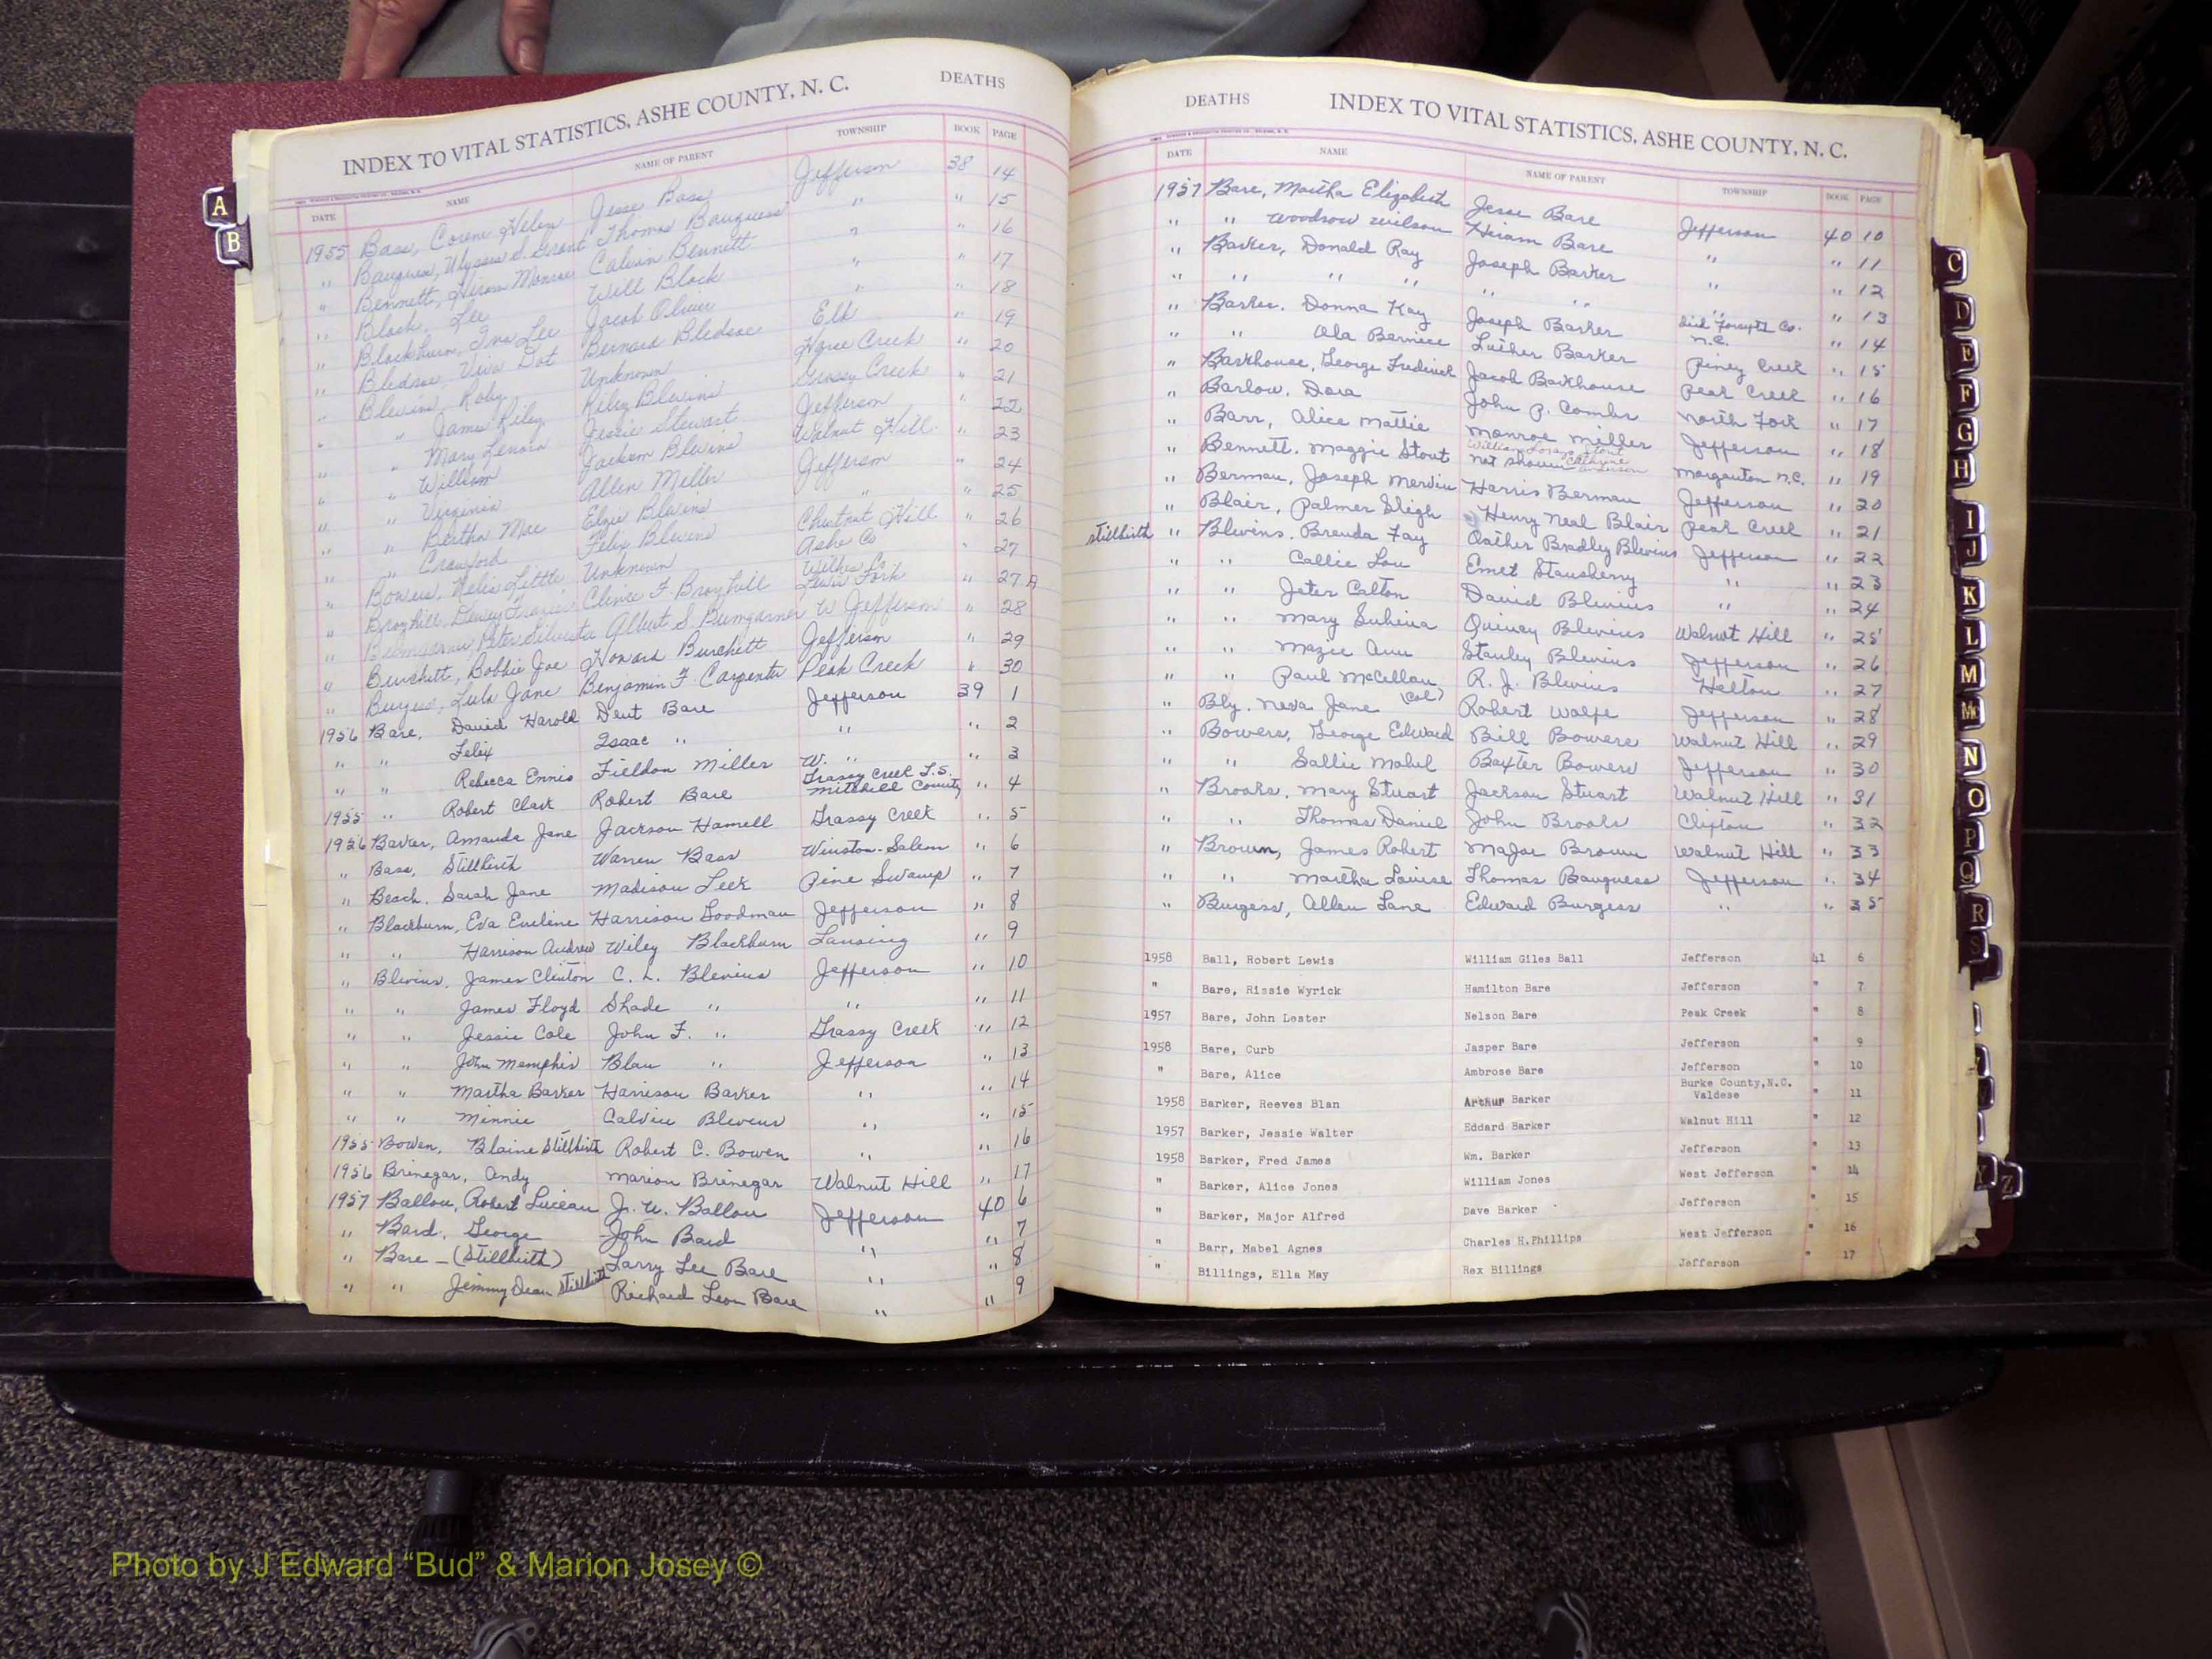 INDEX TO VITAL STATISTICS, ASHE COUNTY, N. C. DEATHS
DATE NAME NAME OF PARENT TOWNSHIP BOOK PAGE
1955 Bass, Corene Helen Jesse Bass Jefferson 38 14
" Bauguess, Ulysses S. Grant Thomas Bauguess " " 15
" Bennett, Hiram Monroe Calvin Bennett " " 16
" Black, Lee Will Black " " 17
" Blackburn, Ina Lee Jacob Oliver " " 18
" Bledsoe, Viva Dot Bernard Bledsoe Elk " 19
" Blevins, Roby Unknown Horse Creek " 20
" " James Riley Riley Blevins Grassy Creek " 21
" " Mary Lenora Jessie Stewart Jefferson " 22
" " William Jackson Blevins Walnut Hill " 23
" " Virginia Allen Miller Jefferson " 24
" " Bertha Mae Elzie Blevins " " 25
" " Crawford Felix Blevins Chestnut Hill " 26
" Bowers, Little Unknown Ashe Co " 27
" Broyhill, Dewey Francis Clince F. Broyhill Wilkes Co Lewis Fork " 27 A
" Bumgarner, Peter Silvesta Albert S. Bumgarner W Jefferson " 28
" Burchett, Bobbie Joe Howard Burchett Jefferson " 29
" Burgess, Lula Jane Benjamin F. Carpenter Peak Creek " 30
1956 Bare, David Harold Dent Bare Jefferson 39 1
" " Felix Isaac " " " 2
" " Rebecca Ennis Fieldon Miller W. " " 3
1955 " Robert Clark Robert Bare Grassy Creek T.S. Mitchell County " 4
1956 Barker, Amanda Jane Jackson Hamell Grassy Creek " 5
" Bass, Stillbirth Warren Bass Winston-Salem " 6
" Beach, Sarah Jane Madison Leek Pine Swamp " 7
" Blackburn, Eva Eveline Harrison Goodman Jefferson " 8
" " Harrison Andrew Wiley Blackburn Lansing " 9
" Blevins, James Clinton C. L. Blevins Jefferson " 10
" " James Floyd Shade " " " 11
" " Jessie Cole John F. " Grassy Creek " 12
" " John Memphis Blan " Jefferson " 13
" " Martha Barker Harrison Barker " " 14
" " Minnie Calvin Blevens " " 15
1955 Bowen, Blaine Stillbirth Robert C. Bowen " " 16
1956 Brinegar, Andy Marion Brinegar Walnut Hill " 17
1957 Ballou, Robert Lucean J. U. Ballou Jefferson 40 6
" Bard, George John Bard " " 7
" Bare - (Stillbirth) Larry Lee Bare " " 8
" " Jimmy Dean Stillbirth Richard Leon Bare " " 9
DEATHS INDEX TO VITAL STATISTICS, ASHE COUNTY, N. C.
DATE NAME NAME OF PARENT TOWNSHIP BOOK PAGE
1957 Bare, Martha Elizabeth Jesse Bare Jefferson 40 10
" " Woodrow Wilson Hiram Bare " " 11
" Barker, Donald Ray Joseph Barker " " 12
" " " " " " " " 13
" Barker, Donna Kay Joseph Barker died Forsyth Co. N.C. " 14
" " Ola Bernice Luther Barker Piney Creek " 15
" Barkhouse, George Fredrick Jacob Barkhouse Peak Creek " 16
" Barlow, Dora John P. Combs North Fork " 17
" Barr, Alice Mattie Monroe Miller Jefferson " 18
" Bennett, Maggie Stout not shown Morganton N.C. " 19
" Berman, Joseph Mervin Harris Berman Jefferson " 20
" Blair, Palmer Sligh Henry Neal Blair Peak Creek " 21
stillbirth " Blevins, Brenda Fay Oather Bradley Blevins Jefferson " 22
" " Callie Lou Emet Stansberry " " 23
" " Jeter Calton David Blevins " " 24
" " Mary Suhina Quincy Blevins Walnut Hill " 25
" " Mazie Ann Stanley Blevins Jefferson " 26
" " Paul McCellan R. J. Blevins Helton " 27
" Bly, Neva Jane (Col) Robert Wolfe Jefferson " 28
" Bowers, George Edward Bill Bowers Walnut Hill " 29
" " Sallie Mabel Baxter Bowers Jefferson " 30
" Brooks, Mary Stuart Jackson Stuart Walnut Hill " 31
" " Thomas Daniel John Brooks Clifton " 32
" Brown, James Robert Major Brown Walnut Hill " 33
" " Martha Louise Thomas Bauguess Jefferson " 34
" Burgess, Allen Lane Edward Burgess " " 35
1958 Ball, Robert Lewis William Giles Ball Jefferson 41 6
" Bare, Rissie Wyrick Hamilton Bare Jefferson " 7
1957 Bare, John Lester Nelson Bare Peak Creek " 8
1958 Bare, Curb Jasper Bare Jefferson " 9
" Bare, Alice Ambrose Bare Jefferson " 10
1958 Barker, Reeves Blan Arthur Barker Burke County, N.C. Valdese " 11
1957 Barker, Jessie Walter Eddard Barker Walnut Hill " 12
1958 Barker, Fred James Wm. Barker Jefferson " 13
" Barker, Alice Jones William Jones West Jefferson " 14
" Barker, Major Alfred Dave Barker Jefferson " 15
" Barr, Mabel Agnes Charles H. Phillips West Jefferson " 16
" Billings, Ella May Rex Billings Jefferson " 17
A
B
C
D
E
F
G
H
I
J
K
L
M
Mc
N
O
P
Q
R
S
Y Z
Photo by J Edward “Bud” & Marion Josey ©